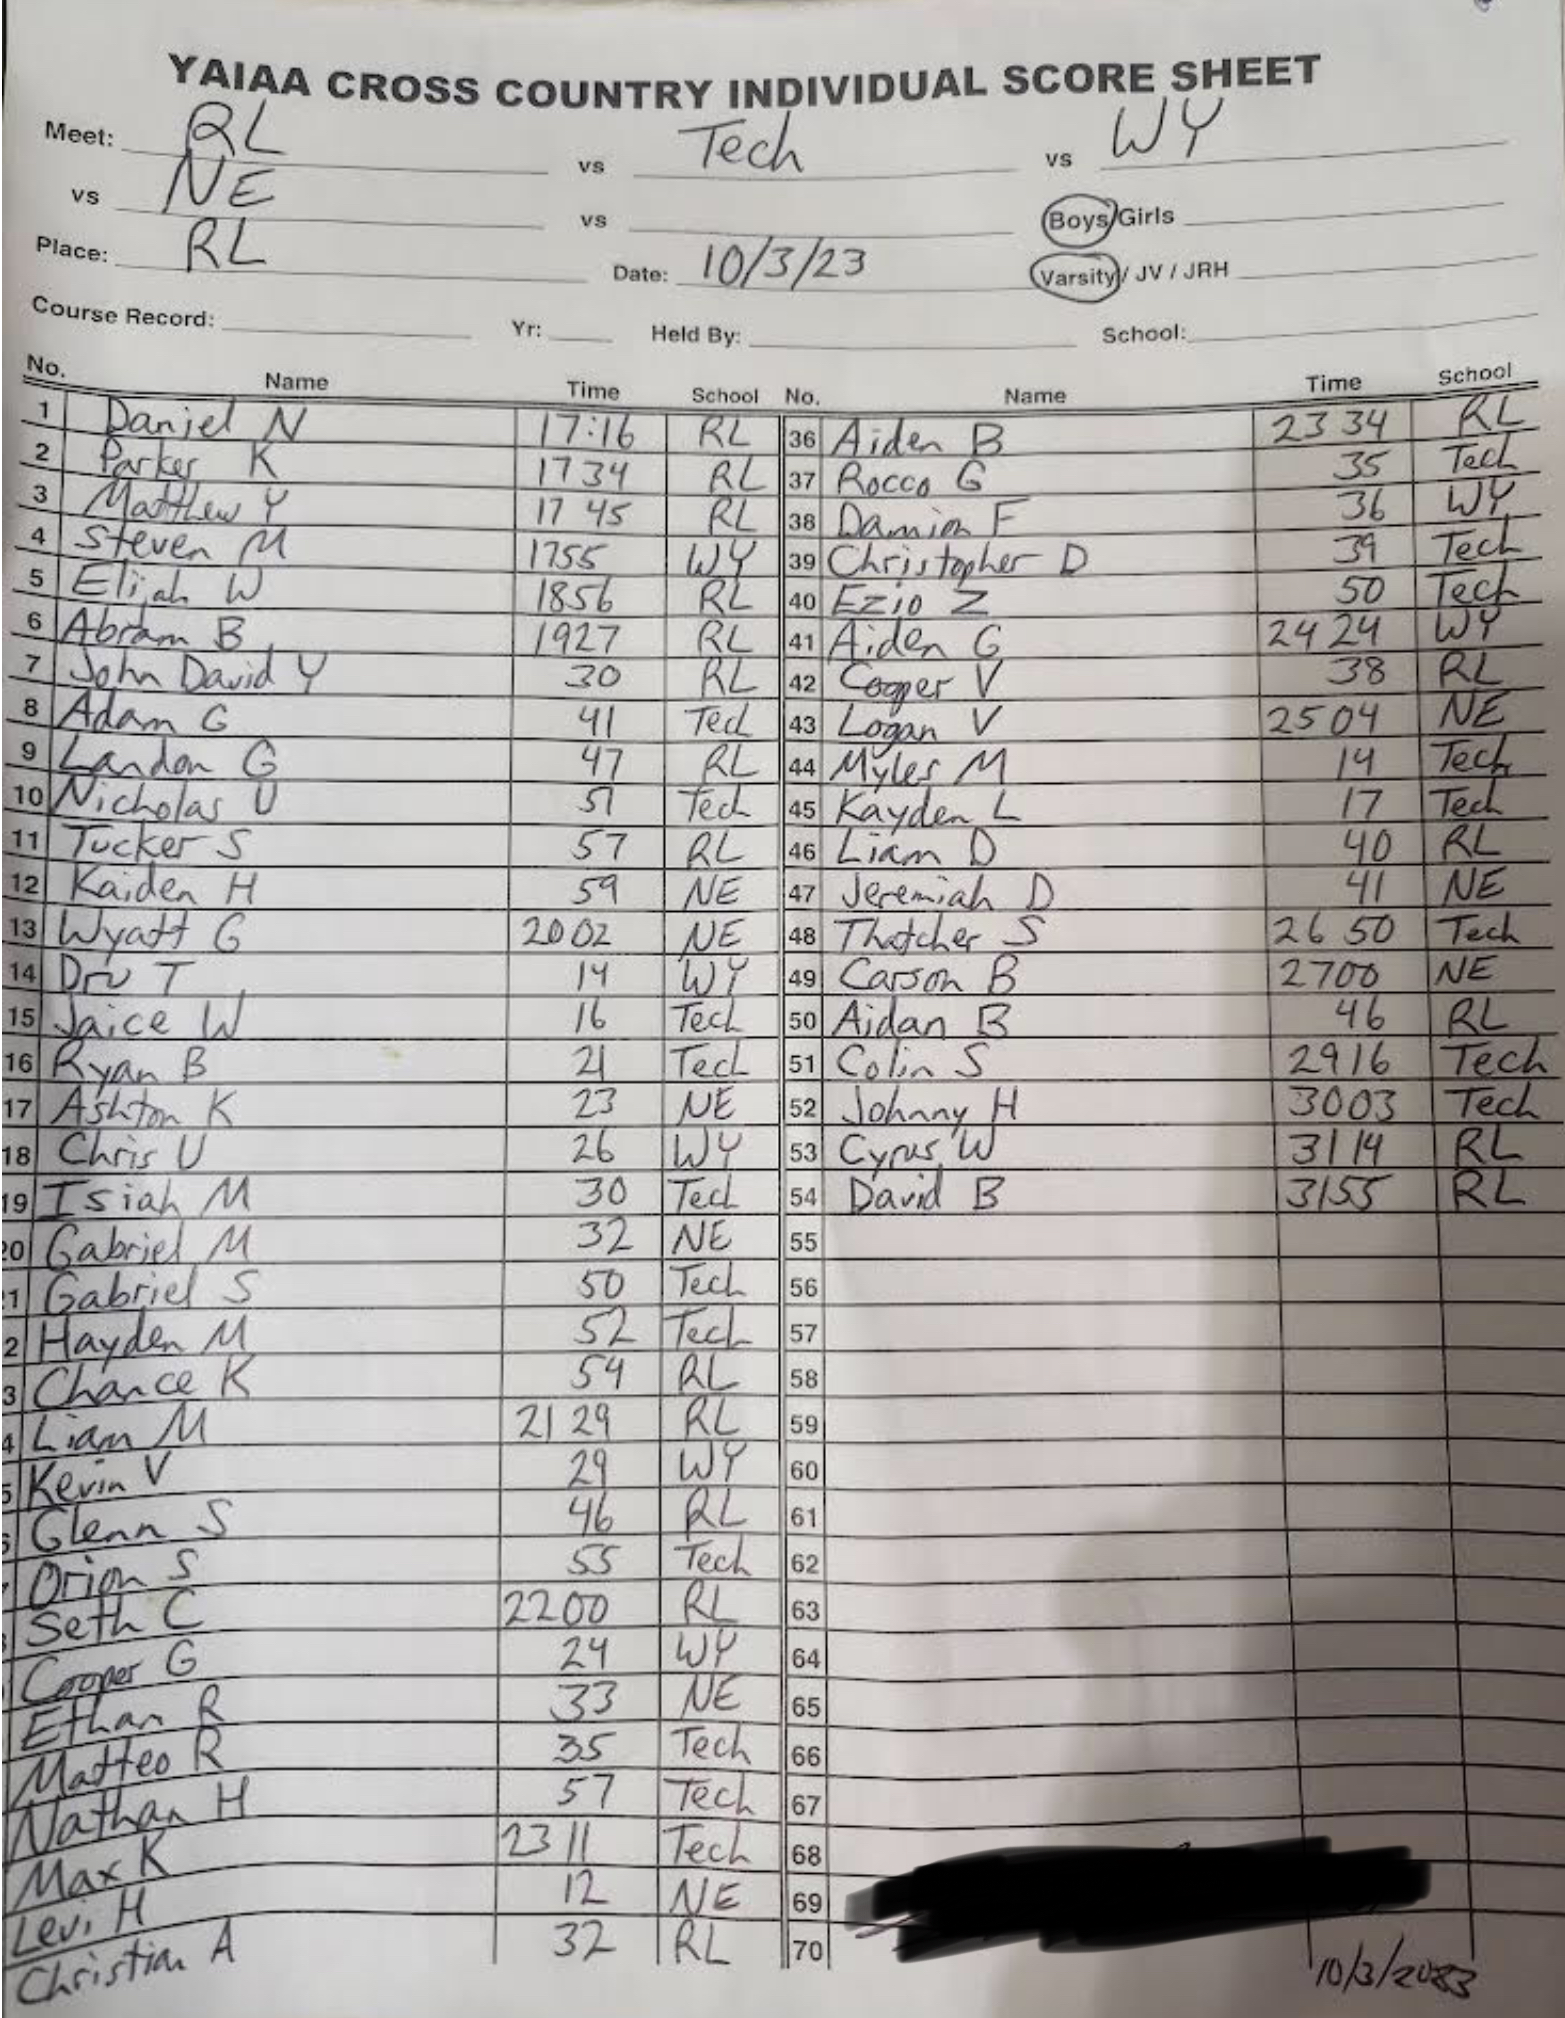 YAIAA CROSS COUNTRY INDIVIDUAL SCORE SHEET
Meet: RL vs Tech vs WY
vs NE vs Boys/Girls
Place: RL Date: 10/3/23 Varsity / JV / JRH
Course Record: Yr: Held By: School:
No. Name Time School No. Name Time School
1 Daniel N 17:16 RL 36 Aiden B 23 34 RL
2 Parker K 17 34 RL 37 Rocco G 35 Tech
3 Matthew Y 17 45 RL 38 Damion F 36 WY
4 Steven M 1755 WY 39 Christopher D 39 Tech
5 Elijah W 1856 RL 40 Ezio Z 50 Tech
6 Abram B 1927 RL 41 Aiden G 24 24 WY
7 John David Y 30 RL 42 Cooper V 38 RL
8 Adam G 41 Tech 43 Logan V 25 04 NE
9 Landon G 47 RL 44 Myles M 14 Tech
10 Nicholas U 51 Tech 45 Kayden L 17 Tech
11 Tucker S 57 RL 46 Liam D 40 RL
12 Kaiden H 59 NE 47 Jeremiah D 41 NE
13 Wyatt G 20 02 NE 48 Thatcher S 26 50 Tech
14 Dru T 14 WY 49 Carson B 2700 NE
15 Jaice W 16 Tech 50 Aidan B 46 RL
16 Ryan B 21 Tech 51 Colin S 2916 Tech
17 Ashton K 23 NE 52 Johnny H 3003 Tech
18 Chris U 26 WY 53 Cyrus W 31 14 RL
19 Isiah M 30 Tech 54 David B 3155 RL
20 Gabriel M 32 NE 55
1 Gabriel S 50 Tech 56
2 Hayden M 52 Tech 57
3 Chance K 54 RL 58
4 Liam M 21 29 RL 59
5 Kevin V 29 WY 60
Glenn S 46 RL 61
Orion S 55 Tech 62
Seth C 2200 RL 63
Cooper G 24 WY 64
Ethan R 33 NE 65
Matteo R 35 Tech 66
Nathan H 57 Tech 67
Max K 23 11 Tech 68
Levi H 12 NE 69
Christian A 32 RL 70
10/3/2023